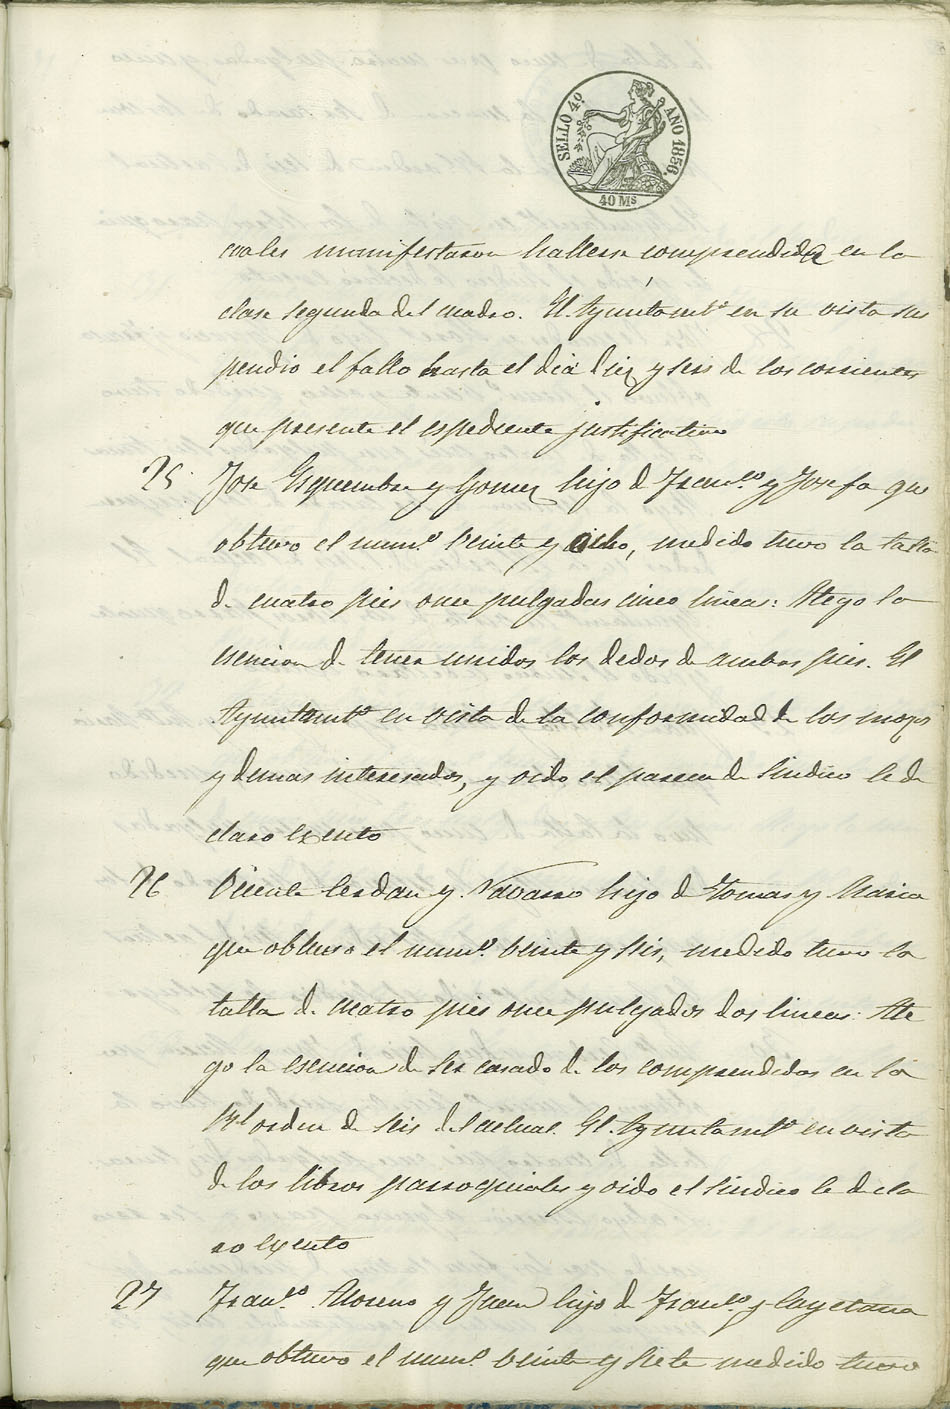 SELLO 4º AÑO 1856.
40 Ms
cuales manifestaron hallarse comprendida en la
clase segunda del cuadro. El Ayuntamtº en su vista sus
pendio el fallo hasta el dia diez y seis de los corrientes
que presente el espediente justificativo
25 Jose Esquembre y Gomez hijo de Francº y Josefa que
obtuvo el numº veinte y ocho, medido tuvo la talla
de cuatro pies once pulgadas cinco lineas: Alego la
esencion de tener unidos los dedos de ambos pies. El
Ayuntamtº en vista de la conformidad de los mozos
y demas interesados, y oido el parecer de Sindico le de
claro exento
26 Vicente Cerdan y Navarro hijo de Tomas y Maria
que obtuvo el numº veinte y seis, medido tuvo la
talla de cuatro pies once pulgadas dos lineas: Ale
go la esencion de ser casado de los comprendidos en la
Rl orden de seis del actual. El Ayuntamtº en vista
de los libros parroquiales y oido el Sindico le decla
ro exento
27 Francº Moreno y Juan hijo de Francº y Cayetana
que obtuvo el numº veinte y siete medido tuvo